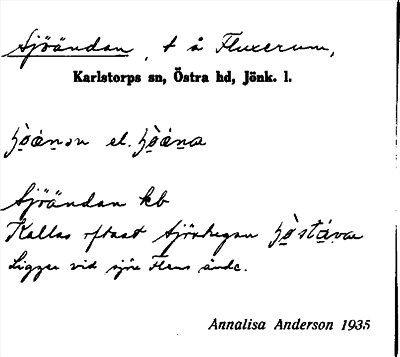 Sjöändan, t å Fluxerum,
Karlstorps sn, Östra hd, Jönk. l.
el.
Sjöändan kb
Kallas oftast
Ligger vid sjön Flens ände.
Annalisa Anderson 1935